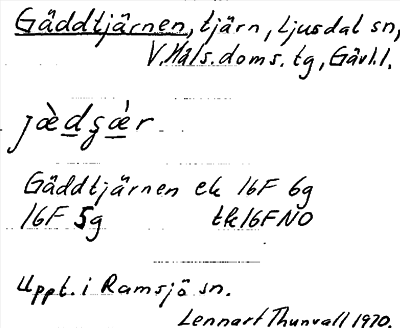 Gäddtjärnen, tjärn, Ljusdal sn,
V. Häls. doms. tg, Gävl. l.
jæ̀dgæ̀r
Gäddtjärnen ek 16F 6g
16F 5g tk16FNO
Uppt. i Ramsjö sn.
Lennart Thunvall 1970.